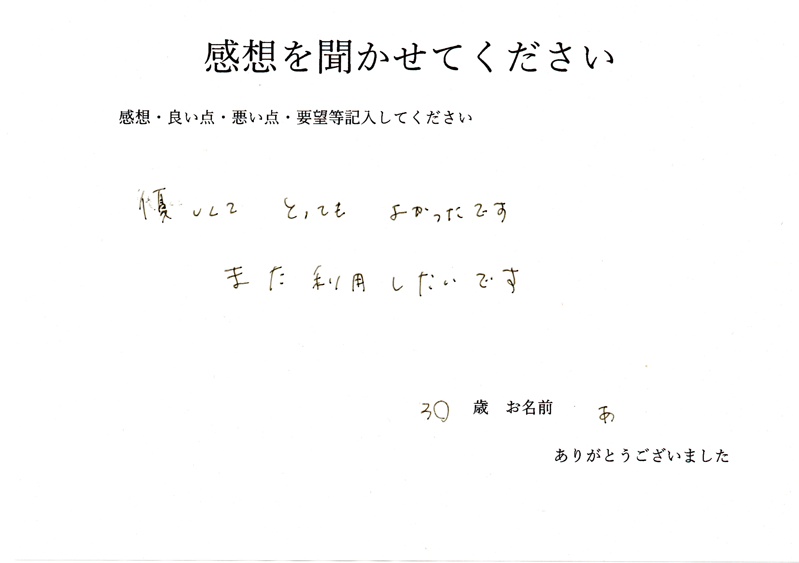 感想を聞かせてください
感想・良い点・悪い点・要望等記入してください
優しくて とっても よかったです
また利用したいです
30 歳 お名前 あ
ありがとうございました